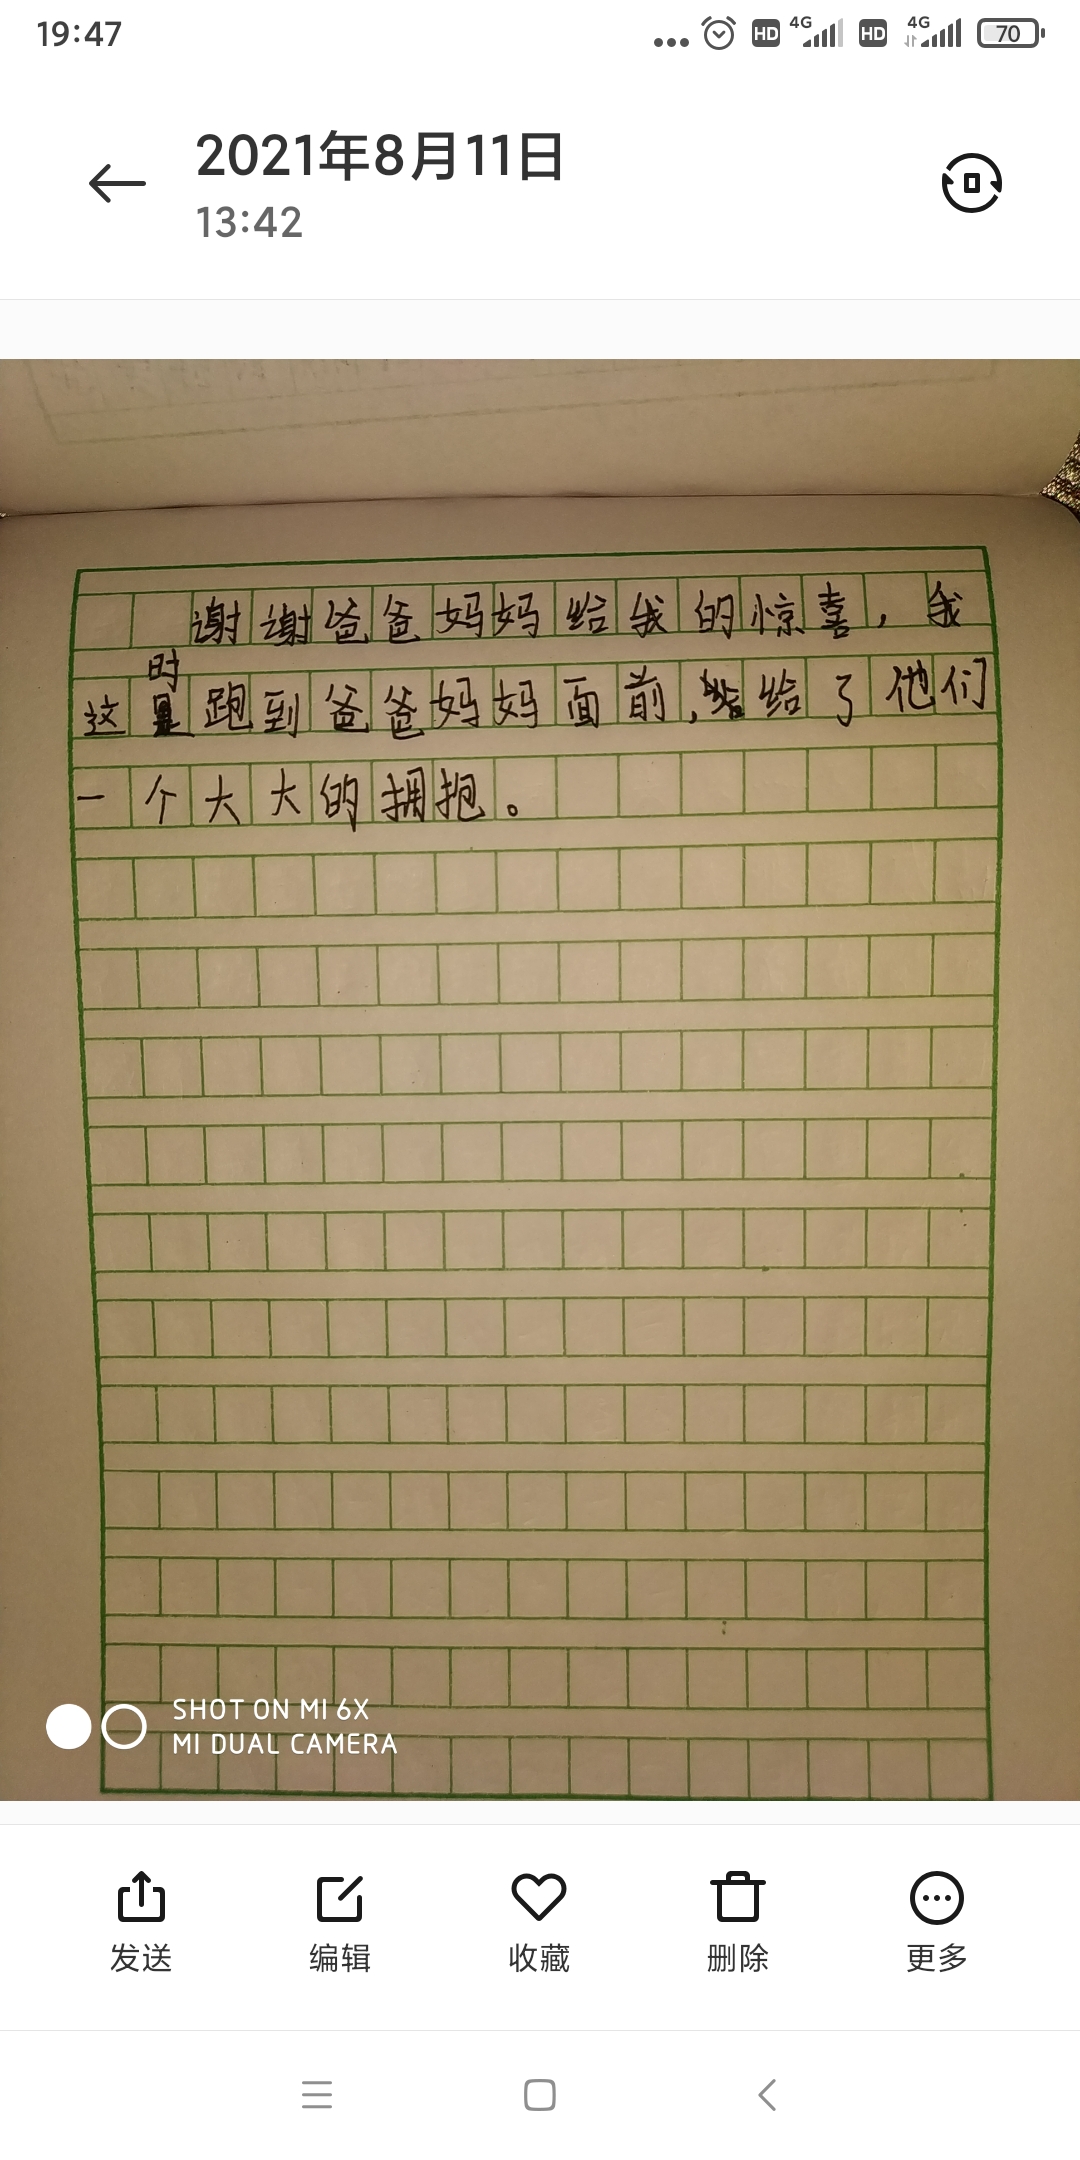 19:47
HD 4G HD 4G 70
2021年8月11日
13:42
谢谢爸爸妈妈给我的惊喜，我
时
这跑到爸爸妈妈面前，给了他们
一个大大的拥抱。
SHOT ON MI 6X
MI DUAL CAMERA
发送 编辑 收藏 删除 更多